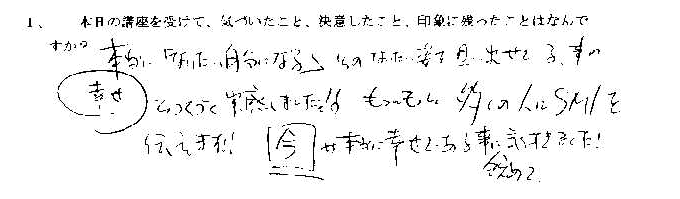 1、 本日の講座を受けて、気づいたこと、決意したこと、印象に残ったことはなんで
すか？ 本当に「なりたい自分になる」 そのなりたい姿を見い出せている、事の
幸せ をつくづく実感しました。 もっともっと 多くの人にSMIを
伝えます! 今 が本当に幸せである事に気づきました!
改めて